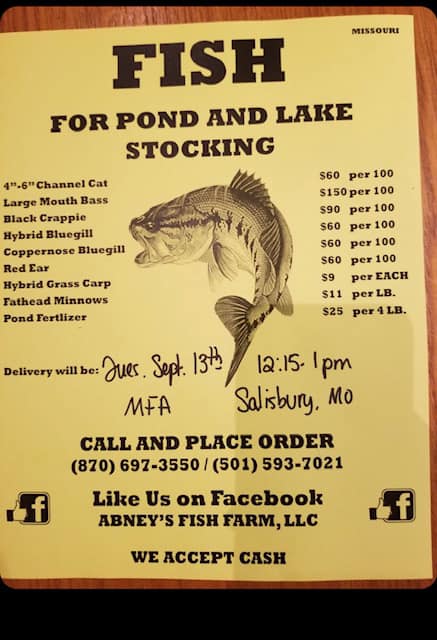 MISSOURI
FISH
FOR POND AND LAKE
STOCKING
4"-6" Channel Cat $60 per 100
Large Mouth Bass $150 per 100
Black Crappie $90 per 100
Hybrid Bluegill $60 per 100
Coppernose Bluegill $60 per 100
Red Ear $60 per 100
Hybrid Grass Carp $9 per EACH
Fathead Minnows $11 per LB.
Pond Fertlizer $25 per 4 LB.
Delivery will be: Tues. Sept. 13th 12:15-1pm
MFA Salisbury, MO
CALL AND PLACE ORDER
(870) 697-3550 / (501) 593-7021
Like Us on Facebook
ABNEY'S FISH FARM, LLC
f f
WE ACCEPT CASH